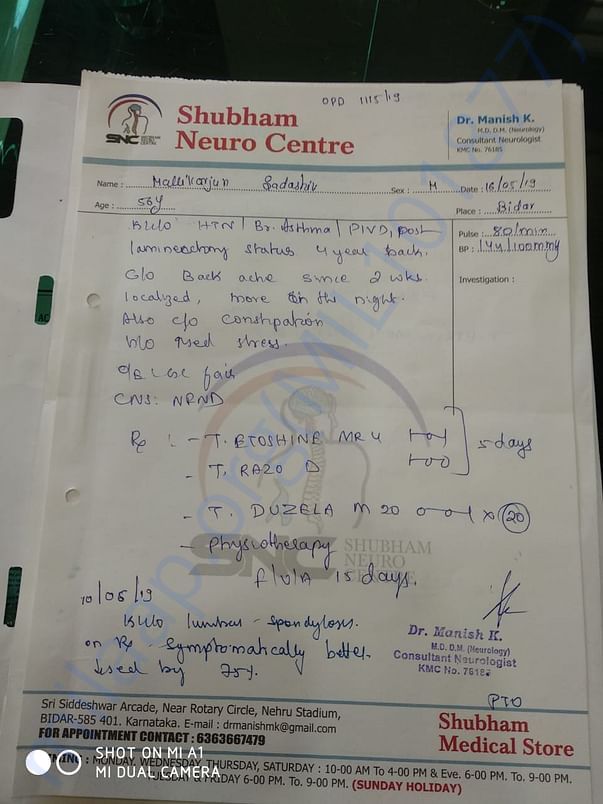 OPD 1115/19
SNC SHUBHAM NEURO CENTRE
Shubham
Neuro Centre
Dr. Manish K.
M.D. D.M. (Neurology)
Consultant Neurologist
KMC No. 76185
Name : Mallikarjun Sadashiv Sex : M Date : 16/05/19
Age : 56y Place : Bidar
Pulse : 80/min
BP : 144/100mmHg
Investigation :
K/c/o HTN / Br. Asthma / PIVD, post
laminectomy status 4 year back.
C/o Back ache since 2 wks.
localized, more in the night.
Also c/o constipation
stress.
fair
CNS: NFND
Rx :- T. ETOSHINE MR 4 1-0-1 5 days
- T. RAZO D 1-0-0
- T. DUZELA M 20 0-0-1 x 20
- Physiotherapy
SNC SHUBHAM NEURO CENTRE
15 days.
/05/19
K/c/o lumbar spondylosis.
on Rx - symptomatically better.
by 75%.
Dr. Manish K.
M.D. D.M. (Neurology)
Consultant Neurologist
KMC No. 76185
PTO
Sri Siddeshwar Arcade, Near Rotary Circle, Nehru Stadium,
BIDAR-585 401. Karnataka. E-mail : drmanishmk@gmail.com
FOR APPOINTMENT CONTACT : 6363667479
Shubham
Medical Store
TIMING : MONDAY, WEDNESDAY, THURSDAY, SATURDAY : 10-00 AM To 4-00 PM & Eve. 6-00 PM. To. 9-00 PM.
TUESDAY & FRIDAY 6-00 PM. To. 9-00 PM. (SUNDAY HOLIDAY)
SHOT ON MI A1
MI DUAL CAMERA
AC